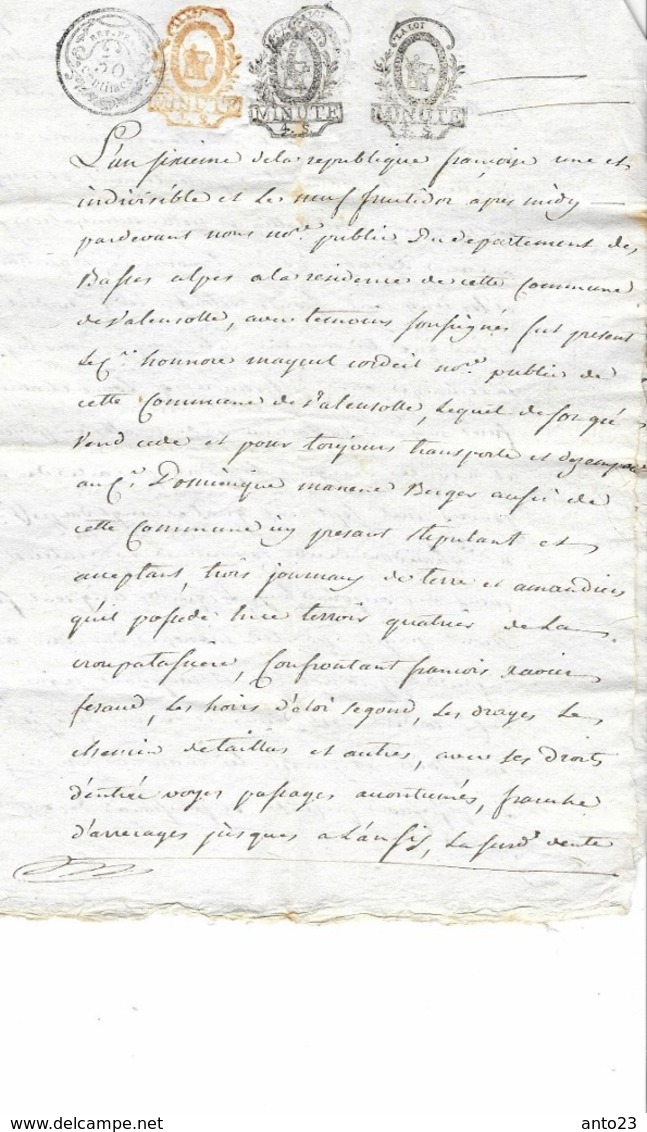 REP. FRA.
50
LA LOI
MINUTE
4. S
LA LOI
MINUTE
4. S
LA LOI
MINUTE
4. S
L'an sixieme de la republique francoise une et
indivisible et le neuf fructidor apres midy
pardevant nous no.re public du departement des
Basses alpes a la residence de cette Commune
de valensolle, avec temoins sousignés fut present
le C.n honnore mayeul cordeil no.re public de
cette Commune de valensolle, lequel de son gré
vend cede et pour toujours transporte et dezempare
au C.n Dominique Berger aussi de
cette Commune icy present stipulant et
acceptant, trois journaux de terre et amandiers
qu'il possede terroir quartier de la
, Confrontant francois xavier
feraud, les hoirs d'eloi segond, les drayes le
chemin de taillas et autres, avec ses droits
d'entrée voyes passages accoutumés, franche
d'arrerages jusques a l'an six, la susd.e vente
anto23